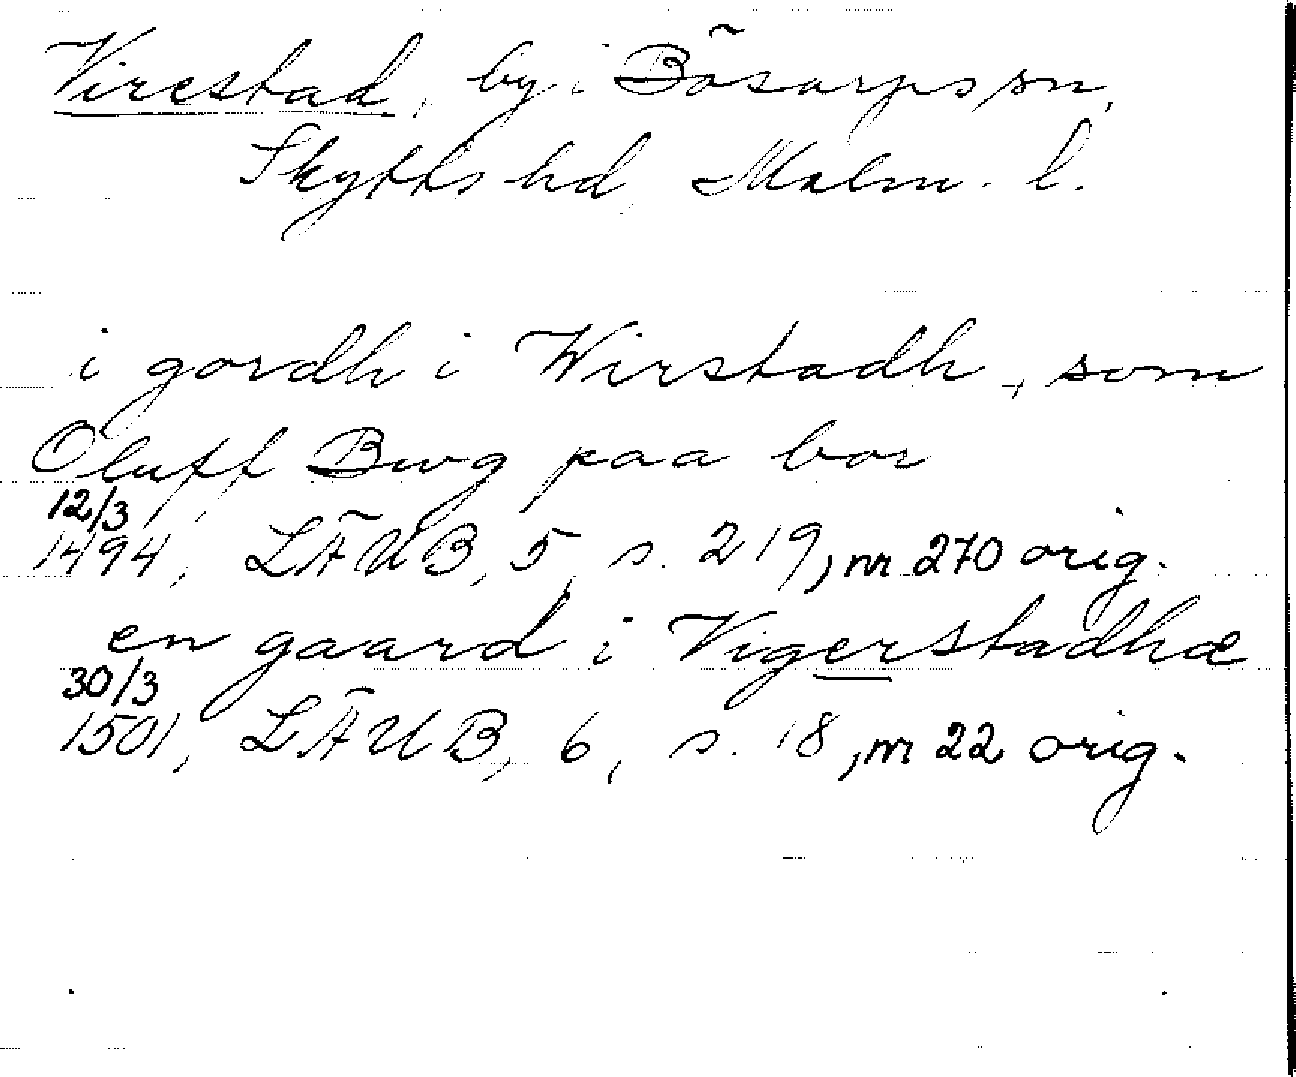 Virestad, by i Bösarps sn,
Skytts hd, Malm. l.
i gordh i Wirstadh, som
Oluff Bwg paa bor
12/3
1494, LÄUB, 5, s. 219, nr 270 orig.
en gaard i Vigerstadhæ
30/3
1501, LÄUB, 6, s. 18, nr 22 orig.